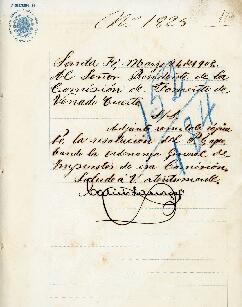 Nº 1823
Santa Fé Mayo 26 de 1902
Al Señor Presidente de la
Comisión de Fomento de
Venado Tuerto
Adjunto remito copia
de la resolución del P. E. apro
bando la ordenanza General de
Impuestos de esa Comisión
Saluda á V. atentamente